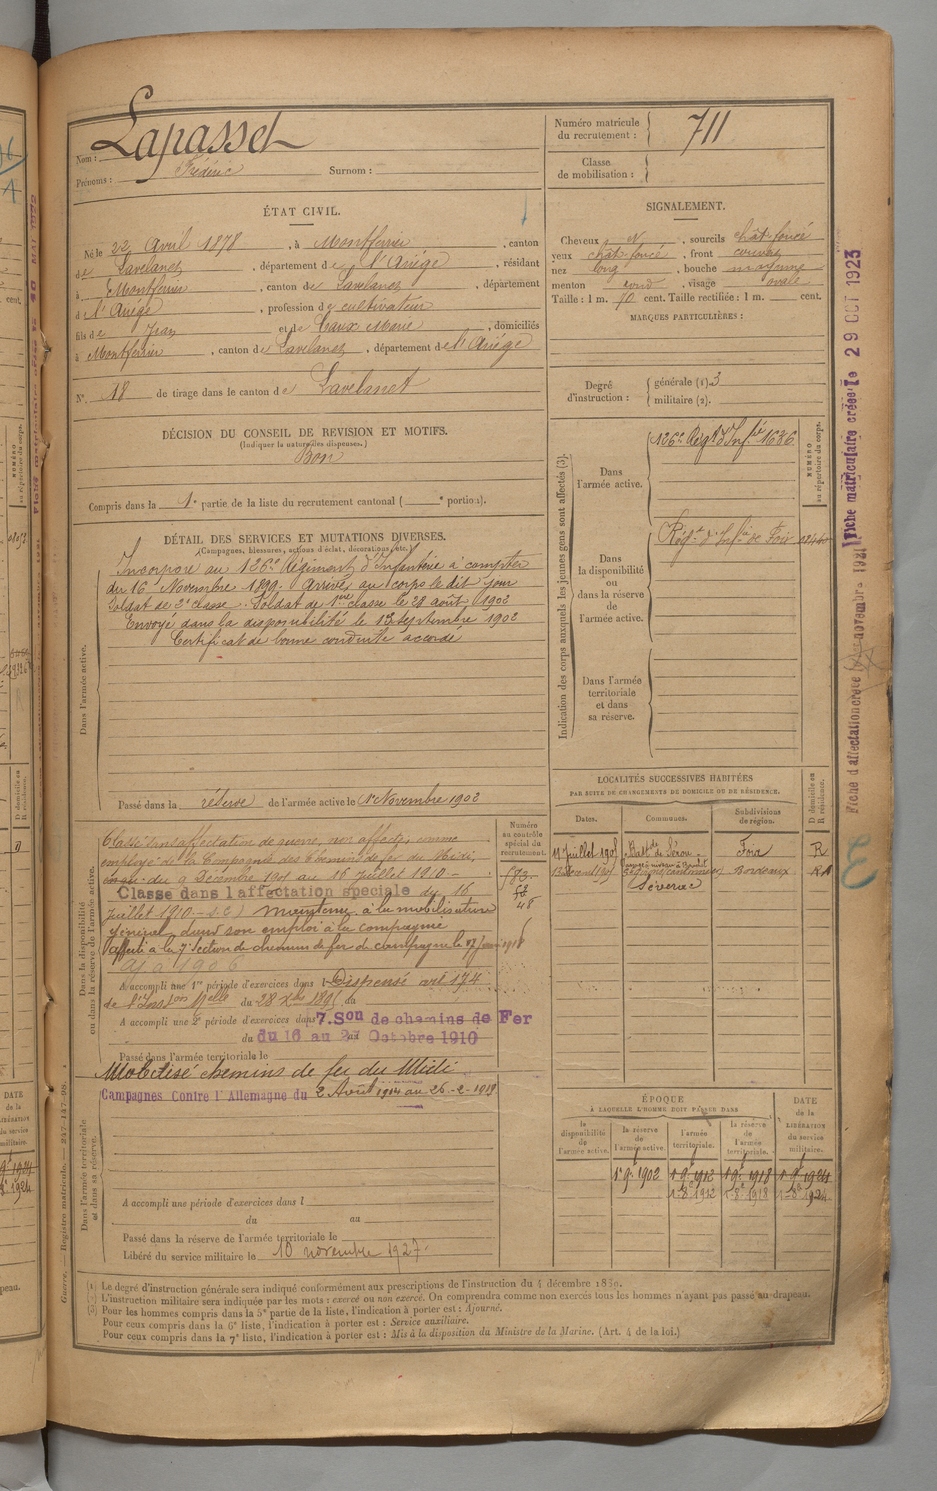 Nom : Lapasset
Prénoms : Frédéric Surnom :
Numéro matricule du recrutement : 711
Classe de mobilisation :
ÉTAT CIVIL.
Né le 22 Avril 1878, à Montferrier, canton
de Lavelanet, département de l'Ariège, résidant
à Montferrier, canton de Lavelanet, département
d l'Ariège, profession de cultivateur
fils de Jean et de Caux Marie, domiciliés
à Montferrier, canton de Lavelanet, département de l'Ariège
N° 18 de tirage dans le canton de Lavelanet
SIGNALEMENT.
Cheveux , sourcils chât. foncé
yeux chât. foncé, front couvert
nez long, bouche moyenne
menton rond, visage ovale
Taille : 1 m. 70 cent. Taille rectifiée : 1 m. cent.
MARQUES PARTICULIÈRES :
Degré d'instruction : générale (1) 3
militaire (2).
DÉCISION DU CONSEIL DE REVISION ET MOTIFS.
(Indiquer la nature des dispenses.)
Bon
Compris dans la 1e partie de la liste du recrutement cantonal ( e portion).
DÉTAIL DES SERVICES ET MUTATIONS DIVERSES.
(Campagnes, blessures, actions d'éclat, décorations, etc.)
Dans l'armée active.
Incorporé au 126e Régiment d'Infanterie à compter
du 16 Novembre 1899. Arrivé au corps le dit jour
Soldat de 2e classe. Soldat de 1ère classe le 28 août 1902
Envoyé dans la disponibilité le 13 septembre 1902
Certificat de bonne conduite accordé
Passé dans la réserve de l'armée active le 1er Novembre 1902
Indication des corps auxquels les jeunes gens sont affectés (3).
NUMÉRO au répertoire du corps.
Dans l'armée active. 126e Régt d'Infie 1686
Dans la disponibilité ou dans la réserve de l'armée active. Régt d'Infie de Foix
Dans l'armée territoriale et dans sa réserve.
Dans la disponibilité ou dans la réserve de l'armée active.
Numéro au contrôle spécial du recrutement.
Classé dans l'affectation de guerre, non affecté, comme
employé de la Compagnie des Chemins de fer du Midi,
du 9 Décembre 1901 au 16 Juillet 1910
Classé dans l'affectation spéciale du 16
Juillet 1910 maintenu à la mobilisation
générale dans son emploi à la compagnie
Affecté à la 7e section de chemins de fer de campagne le
1906
A accompli une 1re période d'exercices dans l Dispensé art 174
de l'Inston Melle du 28 Xbre 1895 du
A accompli une 2e période d'exercices dans 7. Son de chemins de Fer
du 16 au 27 Octobre 1910
Passé dans l'armée territoriale le
Dans l'armée territoriale et dans sa réserve.
Mobilisé chemins de fer du Midi
Campagnes Contre l'Allemagne du 2 Août 1914 au 26-2-1919
A accompli une période d'exercices dans l
du au
Passé dans la réserve de l'armée territoriale le
Libéré du service militaire le 10 novembre 1927.
LOCALITÉS SUCCESSIVES HABITÉES
PAR SUITE DE CHANGEMENTS DE DOMICILE OU DE RÉSIDENCE.
Dates. Communes. Subdivisions de région. D domicile ou R résidence.
11 Juillet 1905 Bastide de Sérou Foix R
Bordeaux
ÉPOQUE
À LAQUELLE L'HOMME DOIT PASSER DANS
la disponibilité de l'armée active. la réserve de l'armée active. l'armée territoriale. la réserve de l'armée territoriale. DATE de la LIBÉRATION du service militaire.
1er 9e 1902 1-9e 1912 1-9e 1918 1-9e 1924
1-8e 1912 1-8e 1918 1-8e 1924
(1) Le degré d'instruction générale sera indiqué conformément aux prescriptions de l'instruction du 4 décembre 1889.
(2) L'instruction militaire sera indiquée par les mots : exercé ou non exercé. On comprendra comme non exercés tous les hommes n'ayant pas passé au drapeau.
(3) Pour les hommes compris dans la 5e partie de la liste, l'indication à porter est : Ajourné.
Pour ceux compris dans la 6e liste, l'indication à porter est : Service auxiliaire.
Pour ceux compris dans la 7e liste, l'indication à porter est : Mis à la disposition du Ministre de la Marine. (Art. 4 de la loi.)
Guerre. — Registre matricule. — 247-147-98.
Fiche d'affectation créée novembre 1921 Fiche matriculaire créée le 29 OCT 1923